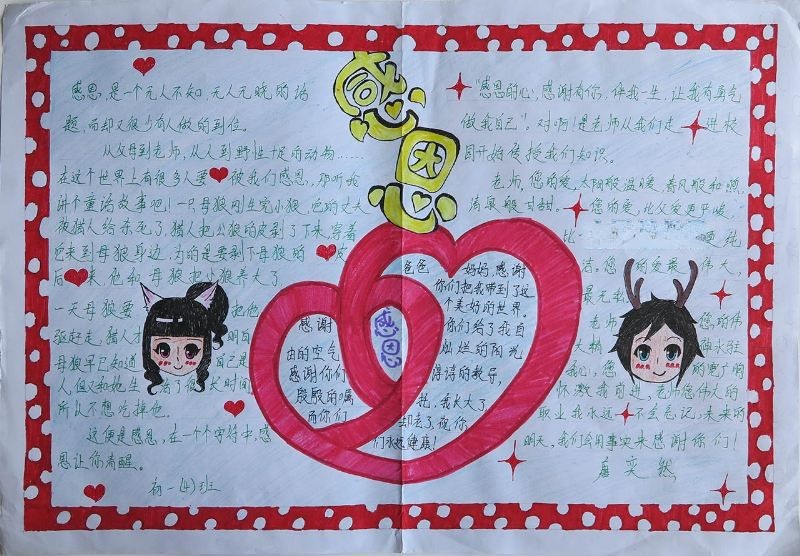 感恩
感恩，是一个无人不知，无人无晓的话
题，而却又很少有人做的到位。
从父母到老师，从人到野性十足的动物……
在这个世界上有很多人要被我们感恩，那听我
讲个童话故事吧！一只母狼刚生完小狼，它的丈夫
被猎人给杀死了，猎人把公狼的皮剥了下来，穿着
近来到母狼身边，为的是要剥下母狼的皮
后来，他和母狼把小狼养大了。
一天母狼要把他
驱赶走，猎人才明白
母狼早已知道自己是
人，但又和她生活了很长时间
所以不想吃掉他。
这便是感恩，在一个个字符中，感
恩让你清醒。
初一(4)班
感恩
感谢
由的空气
感谢你们
殷殷的嘱
而你们
爸爸 妈妈，感谢
你们把我带到了这
个美好的世界。
你们给了我自
灿烂的阳光
谆谆的教导，
托，我长大了，
却去了，祝你
们永远健康！
“感恩的心，感谢有你，伴我一生，让我有勇气
做我自己”。对啊！是老师从我们走进校
园开始传授我们知识。
老师，您的爱，太阳般温暖，春风般和煦，
清泉般甘甜。您的爱，比父爱更严峻，
比 纯
洁。您的爱最伟大，
最无
老师 您的伟
大精 融永驻
我心，您的更广的
怀激我前进，老师您伟大的
职业我永远不会忘记，未来的
明天，我们会用事实来感谢你们！
唐奕然